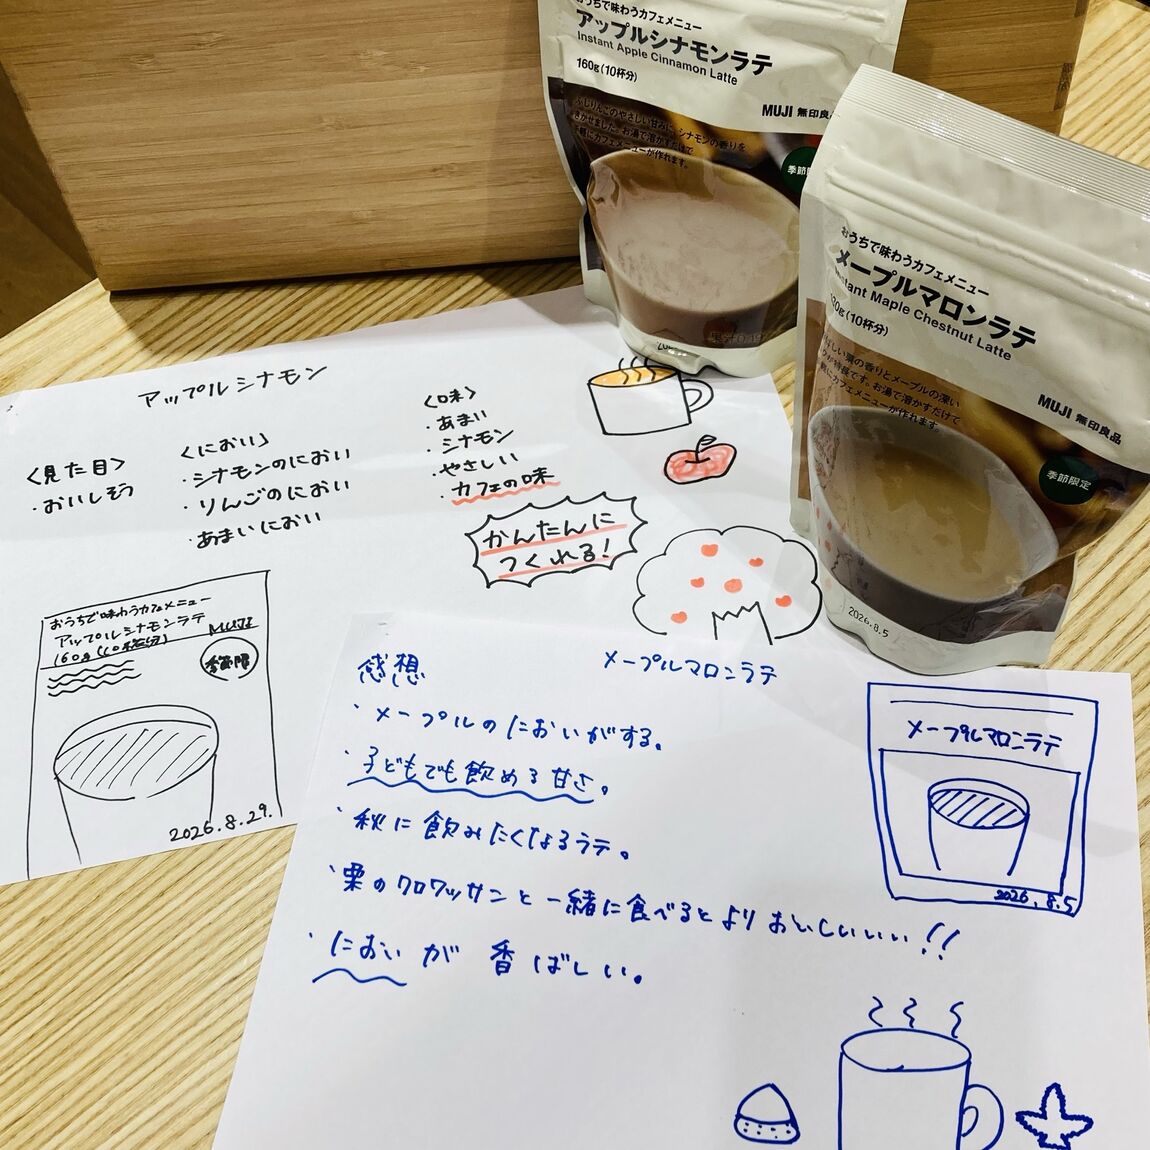 おうちで味わうカフェメニュー
アップルシナモンラテ
Instant Apple Cinnamon Latte
160g(10杯分)
MUJI 無印良品
ふじりんごのやさしい甘みに、シナモンの香りを
きかせました。お湯で溶かすだけで
手軽にカフェメニューが作れます。
季節
おうちで味わうカフェメニュー
メープルマロンラテ
Instant Maple Chestnut Latte
(10杯分)
ばしい栗の香りとメープルの深い
が特長です。お湯で溶かすだけで
軽にカフェメニューが作れます。
MUJI 無印良品
季節限定
2026.8.5
アップルシナモン
〈見た目〉
・おいしそう
〈におい〉
・シナモンのにおい
・りんごのにおい
・あまいにおい
〈味〉
・あまい
・シナモン
・やさしい
・カフェの味
かんたんに
つくれる!
おうちで味わうカフェメニュー
アップルシナモンラテ
160g(10杯分)
MUJI
季節限
2026.8.29.
感想
メープルマロンラテ
・メープルのにおいがする。
・子どもでも飲める甘さ。
・秋に飲みたくなるラテ。
・栗のクロワッサンと一緒に食べるとよりおいしいいい!!
・においが香ばしい。
メープルマロンラテ
2026.8.5